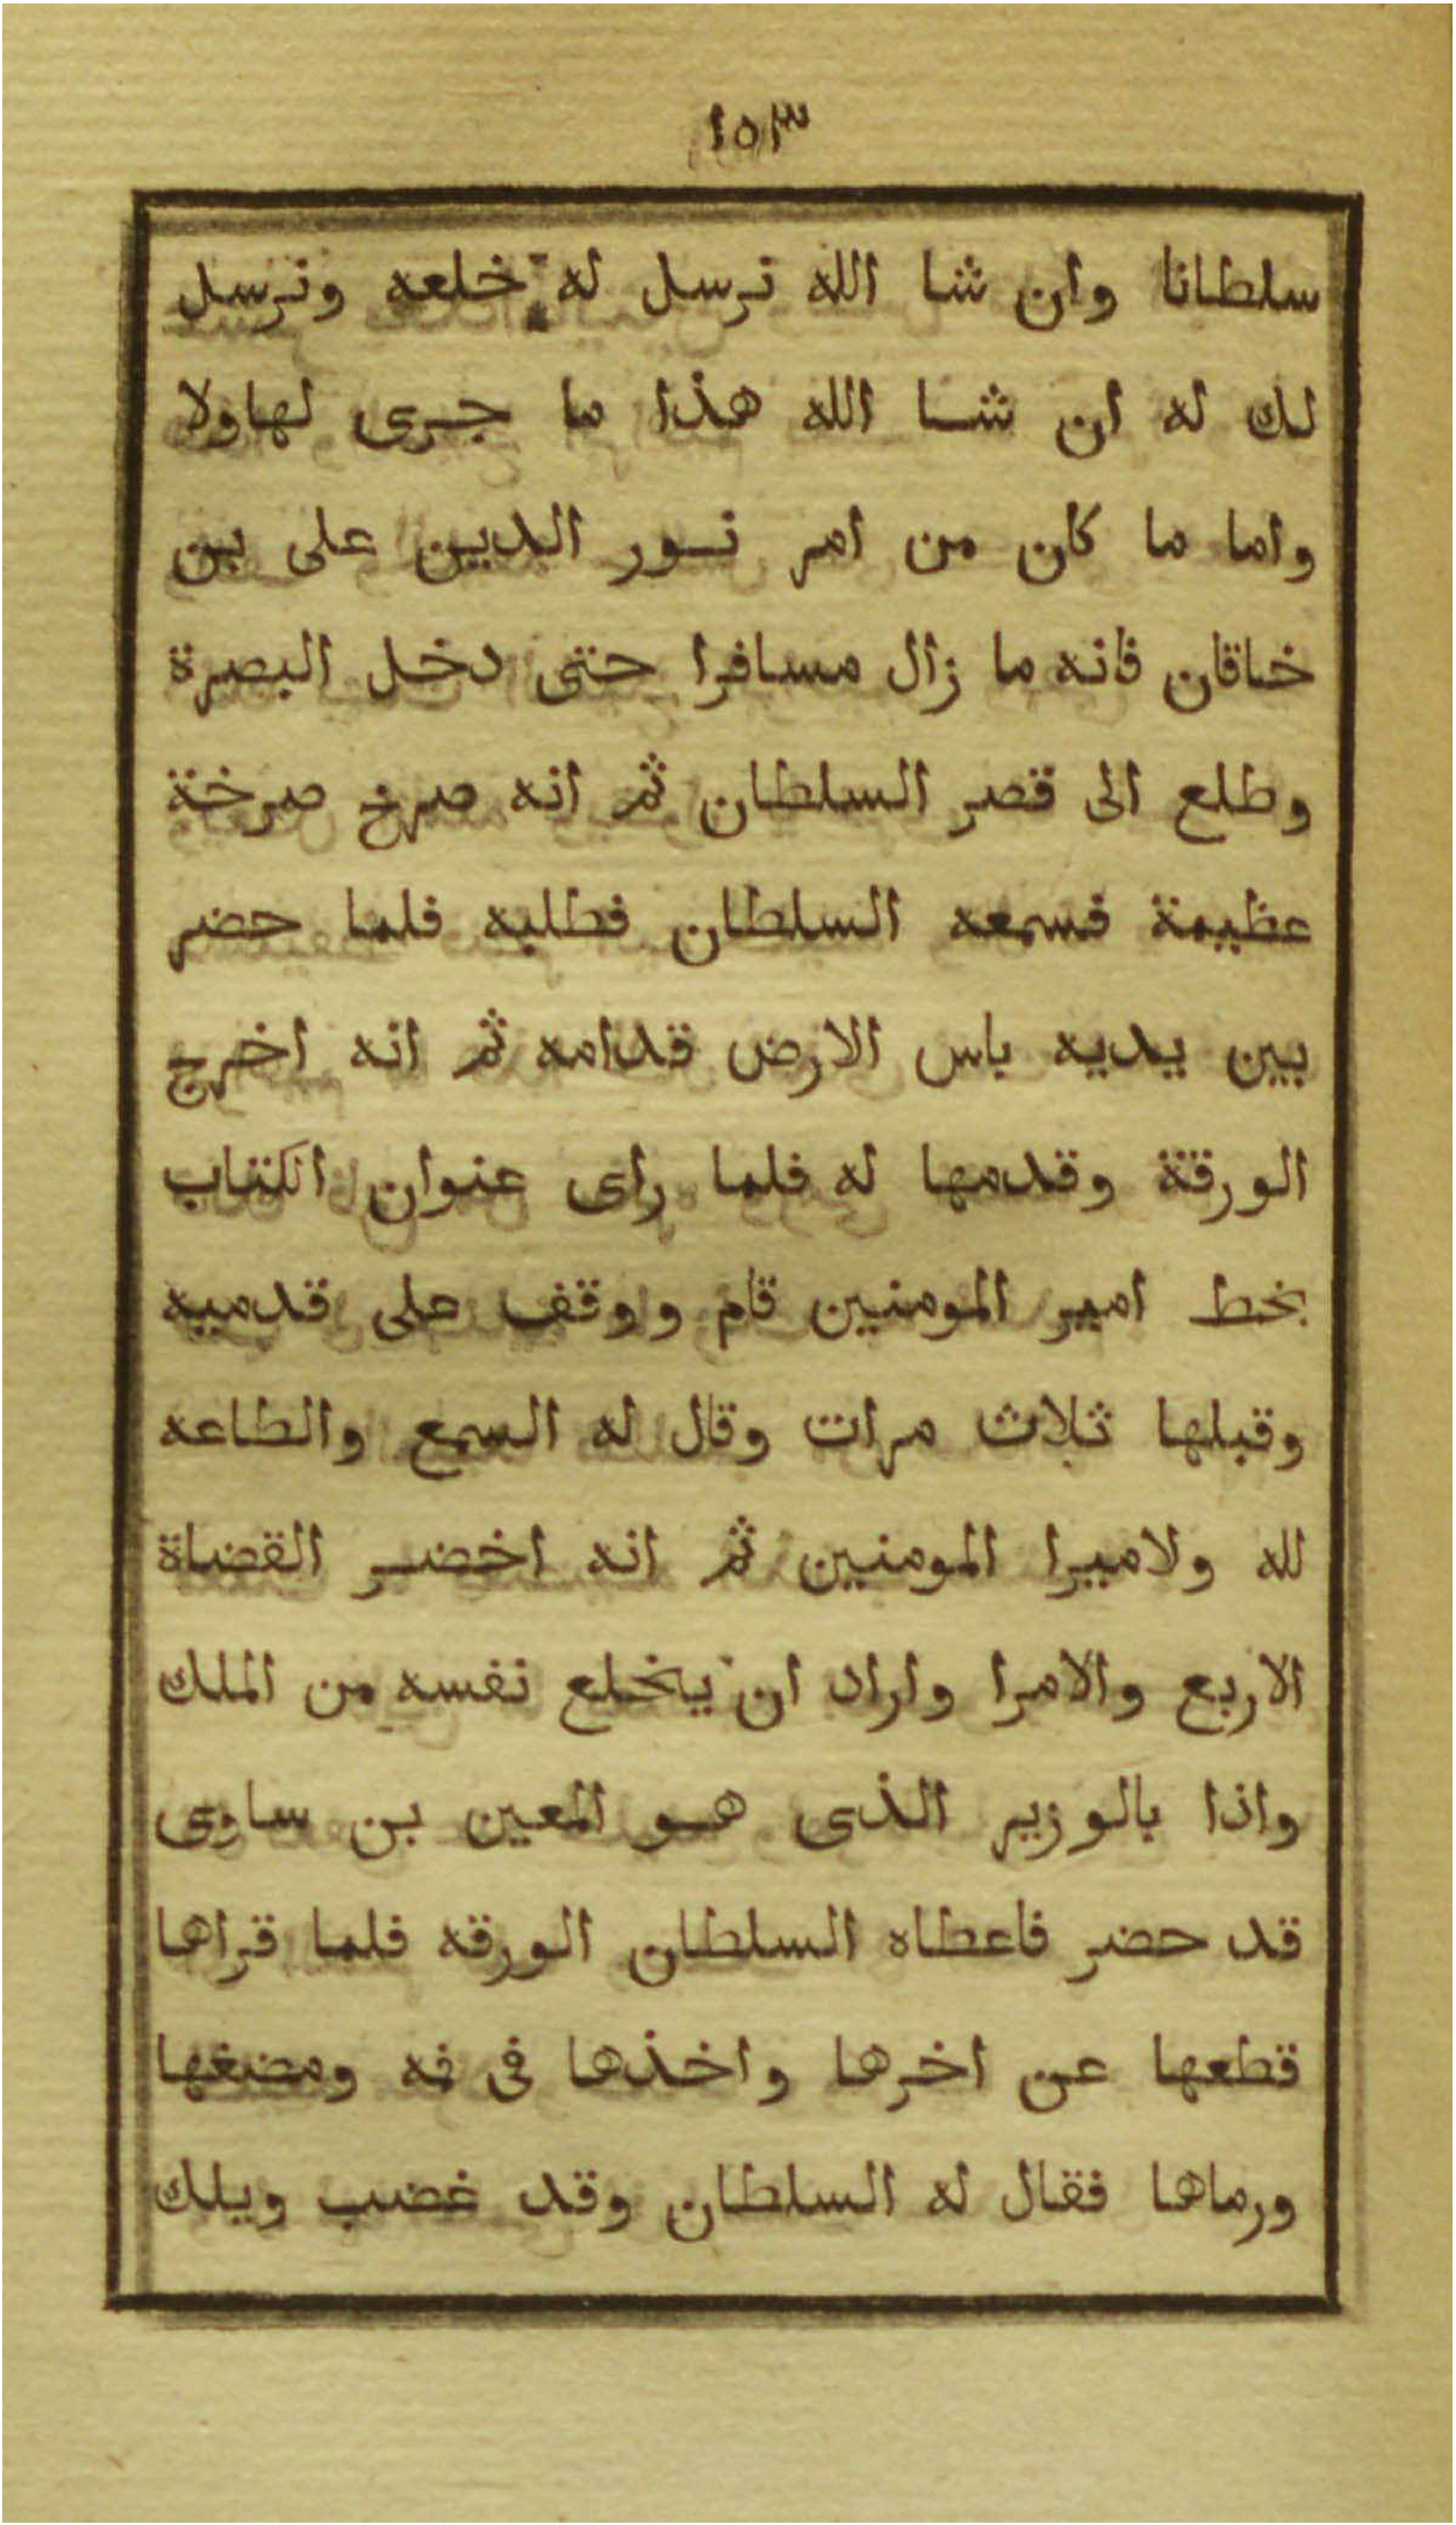 ١٥٣
سلطانا وان شا الله نرسل له خلعه ونرسل
لك له ان شا الله هذا ما جرى لهاولا
واما ما كان من امر نور الدين على بن
خاقان فانه ما زال مسافرا حتى دخل البصرة
وطلع الى قصر السلطان ثم انه صرخ صرخة
عظيمة فسمعه السلطان فطلبه فلما حضر
بين يديه باس الارض قدامه ثم انه اخرج
الورقة وقدمها له فلما راى عنوان الكتاب
بخط امير المومنين قام ووقف على قدميه
وقبلها ثلاث مرات وقال له السمع والطاعه
لله ولاميرا المومنين ثم انه اخضر القضاة
الاربع والامرا واراد ان يخلع نفسه من الملك
واذا بالوزير الذى هو المعين بن ساوى
قد حضر فاعطاه السلطان الورقه فلما قراها
قطعها عن اخرها واخذها فى فه ومضغها
ورماها فقال له السلطان وقد غضب ويلك